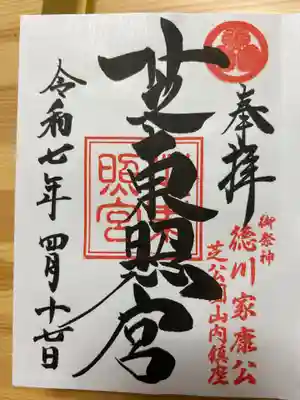 奉拝
御祭神
徳川家康公
芝公園山内鎮座
芝東照宮
芝東照宮
令和七年 四月十七日